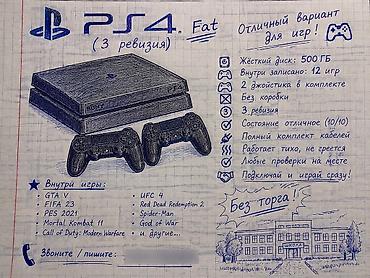 PS4. Fat
(3 ревизия)
Отличный вариант
для игр!
Жёсткий диск: 500 ГБ
Внутри записано: 12 игр
2 джойстика в комплекте
Без коробки
3 ревизия
Состояние отличное (10/10)
Полный комплект кабелей
Работает тихо, не греется
Любые проверки на месте
Подключай и играй сразу!
SONY
PS4
Внутри игры:
• GTA V
• FIFA 23
• PES 2021
• Mortal Kombat 11
• Call of Duty: Modern Warfare
• UFC 4
• Red Dead Redemption 2
• Spider-Man
• God of War
• и другие...
Без торга!
Звоните / пишите: